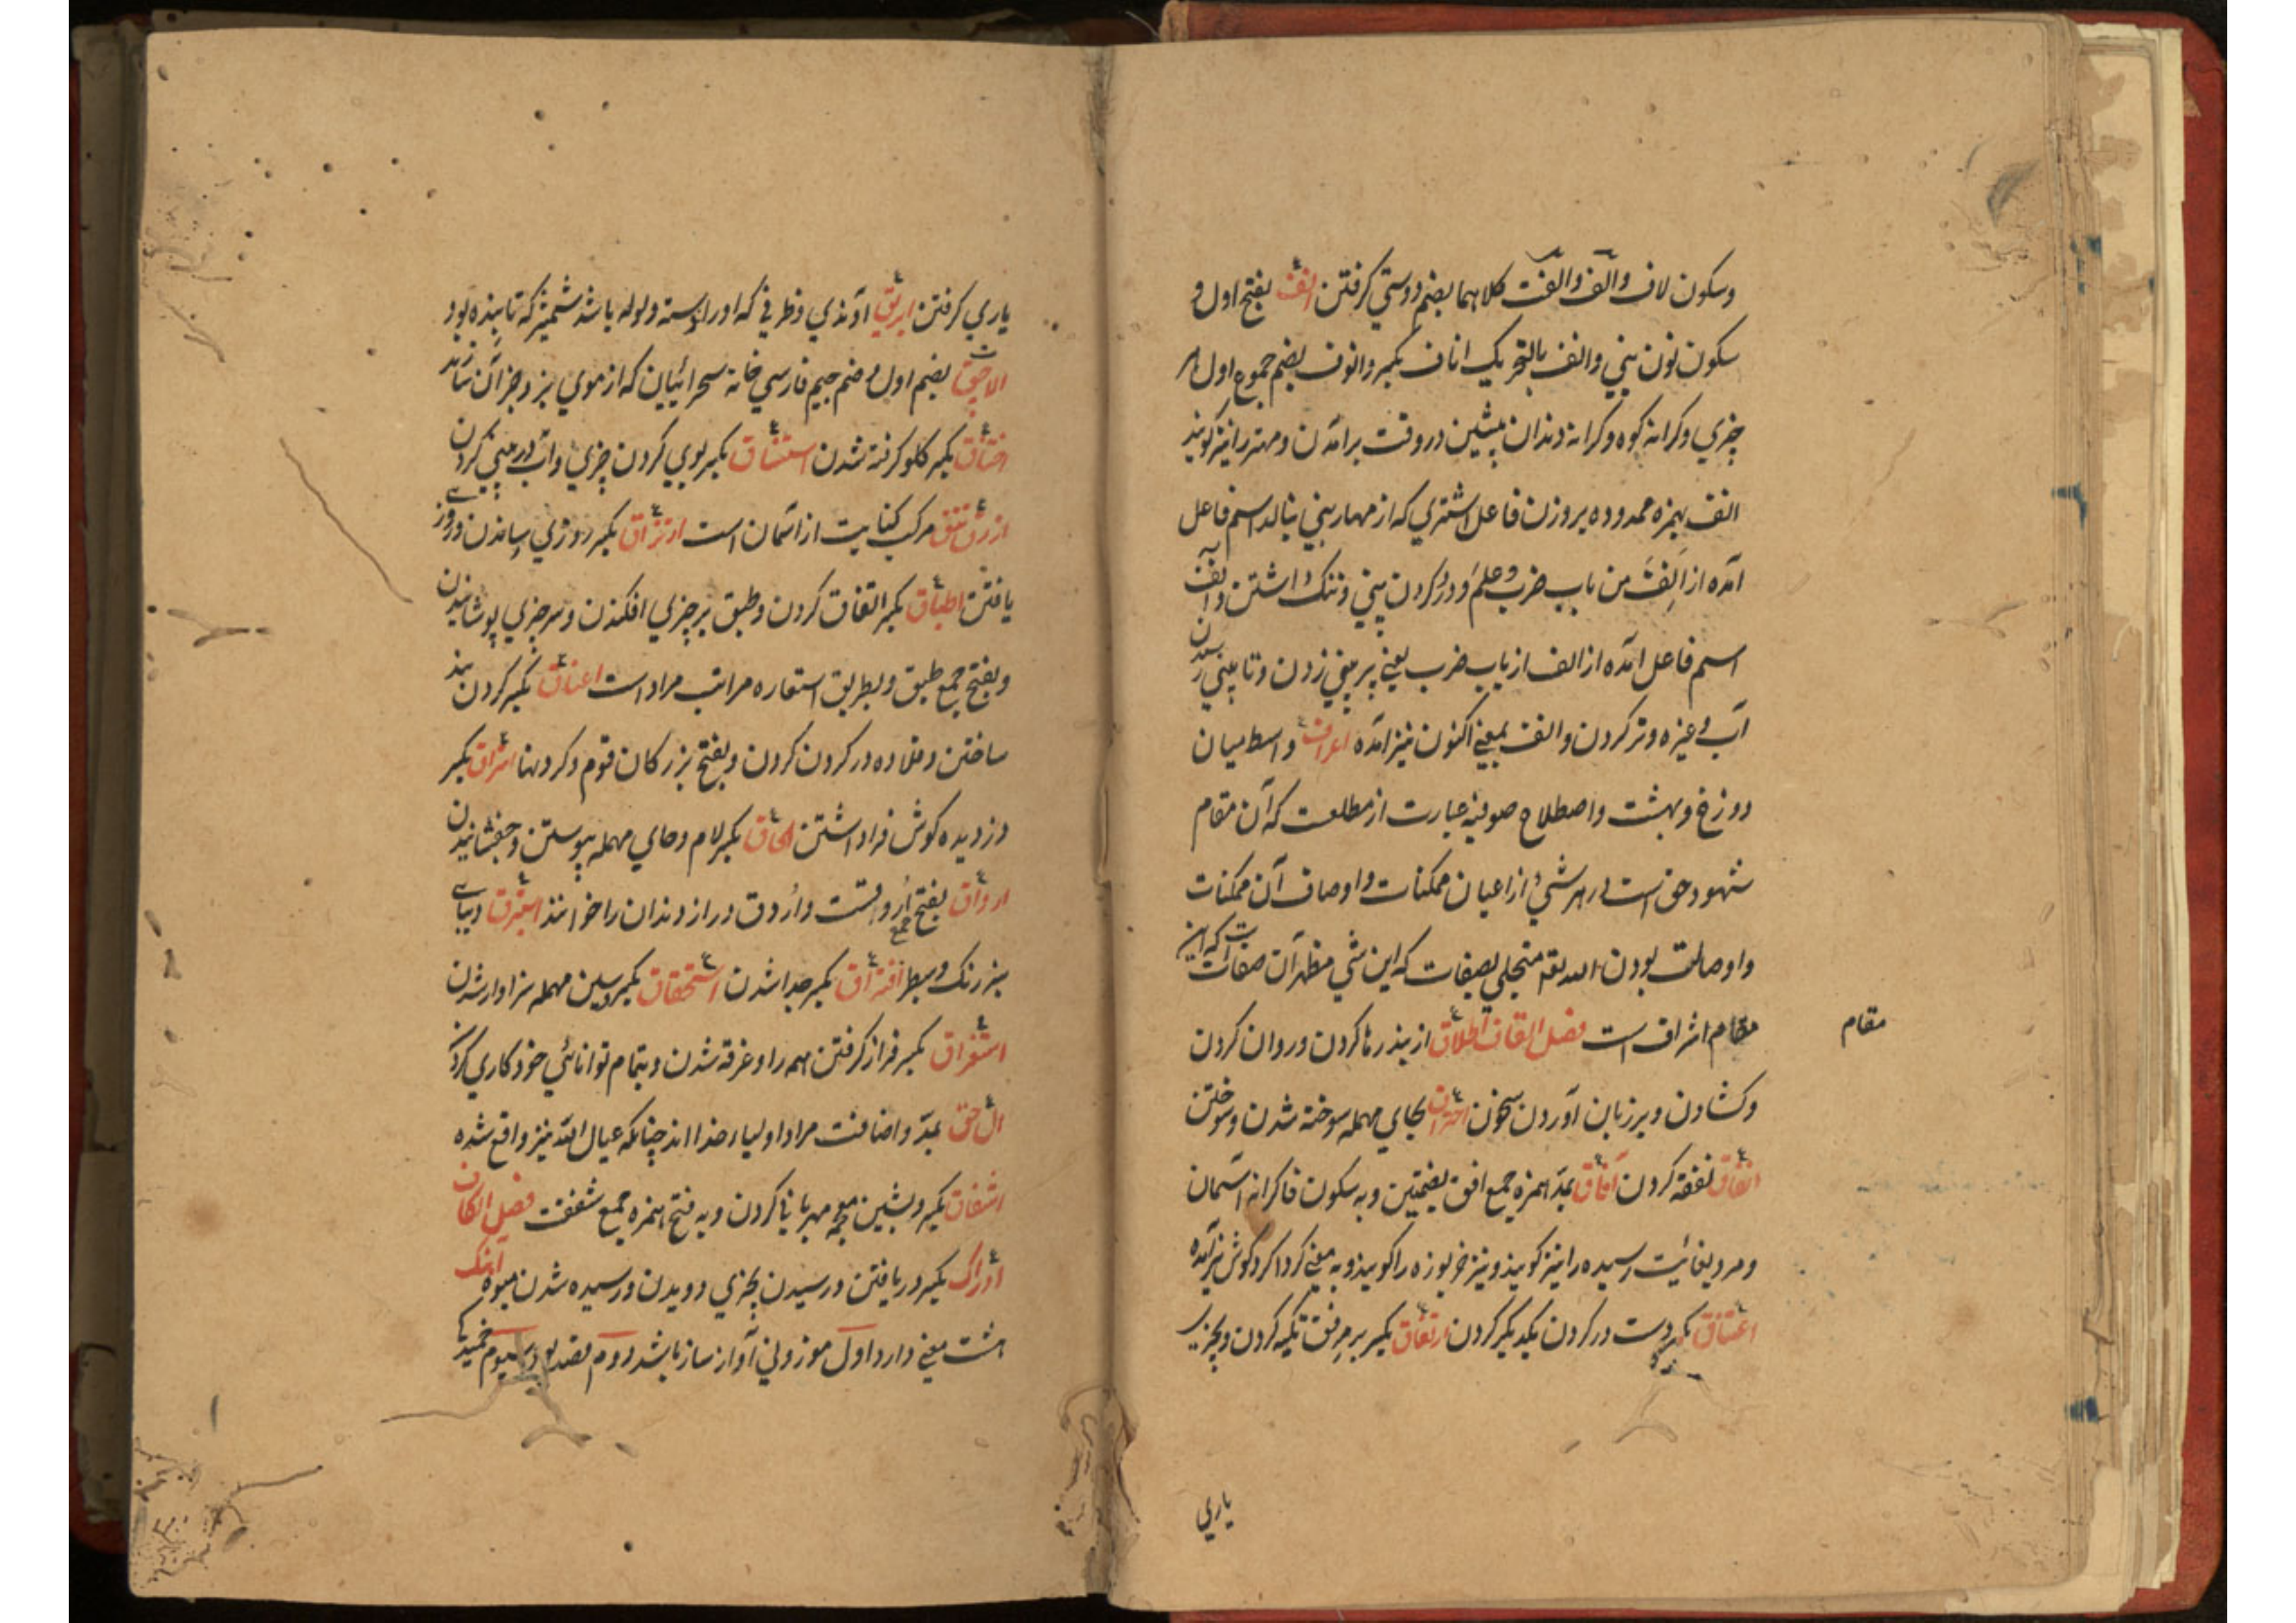 وسکون لاف والف والفت کلاهما بضم دوستي کرفتن انف بفتح اول و
سکون نون بيني وانف بالتحريک اناف بکسر وانوف بضم جموع اول هر
چيزي وکرانه کوه وکرانه دندان پيشين در وقت برامدن ومهتر را نيز کويند
انف بهمزه ممدوده بر وزن فاعل اشتري که از مهار بيني بنالد اسم فاعل
آمده از اَنِفَ من باب ضرب وعلم ودرد کردن بيني وننک داشتن وانف
اسم فاعل آمده از انف از باب ضرب يعني بر بيني زدن وتا بيني رسيدن
آب وغيره وتر کردن وانف بمعني اکنون نيز آمده اعراف واسط ميان
دوزخ وبهشت واصطلاح صوفيه عبارت از مطلعست که آن مقام
شهود حق است در هر شيء از اعيان ممکنات واوصاف آن ممکنات
واوصاف بودن الله تع متجلي بصفات که اين شي مظهر آن صفات است که اين
مقام
مقام اشراف است فصل القاف اطلاق از بند رها کردن وروان کردن
وکشادن وبر زبان آوردن سخن احتراق بحاي مهمله سوخته شدن وسوختن
انفاق نفقه کردن آفاق بمد همزه جمع افق بضمتين وبه سکون فا کرانه آسمان
ومرد بغائيت رسيده را نيز کويند ونيز خربوزه را کويند وبه معني کرداکرد کوش نيز آمده
اعتناق بکسر دست در کردن يکديکر کردن ارتفاق بکسر بر مرفق تکيه کردن وبچيزي
ياري
ياري کرفتن ابريق آوندي وظرفي که اورا دسته ولوله باشد شمشير که تابنده بود
الاچق بضم اول وضم جيم فارسي خانه صحرائيان که از موي بز وجز آن سازند
اختناق بکسر کلو کرفته شدن استنشاق بکسر بوي کردن چيزي وآب در بيني کردن
ازرق تتق مرکب کنايت از آسمان است ارتزاق بکسر روزي رساندن وروزي
يافتن اطباق بکسر اتفاق کردن وطبق بر چيزي افکندن وسر چيزي پوشانيدن
وبفتح جمع طبق وبطريق استعاره مراتب مراد است اعناق بکسر کردن بند
ساختن وقلاده در کردن کردن وبفتح بزرکان قوم وکردنها استراق بکسر
دزديده کوش فرا داشتن الحاق بکسر لام وحاي مهمله پيوستن وچفسانيدن
ارواق بفتح جمع اروق است واروق دراز دندان را خوانند استبرق ديباي
سبز رنک وسطبر افتراق بکسر جدا شدن استحقاق بکسر وسين مهمله سزاوار شدن
استغراق بکسر فراز کرفتن همه را وغرقه شدن وبتمام توانائي خود کاري کردن
ال حق بمد واضافت مراد اولياء خدا اند چنانکه عيال الله نيز واقع شده
اشفاق بکسر وبشين معجمه مهربانيا کردن وبه فتح همزه جمع شفقت فصل الکاف
ادراک بکسر دريافتن ورسيدن بچيزي وديدن ورسيده شدن ميوه آهنک
هشت معني دارد اول موزوني آواز ساز باشد دوم قصد بود سيوم خميدکي